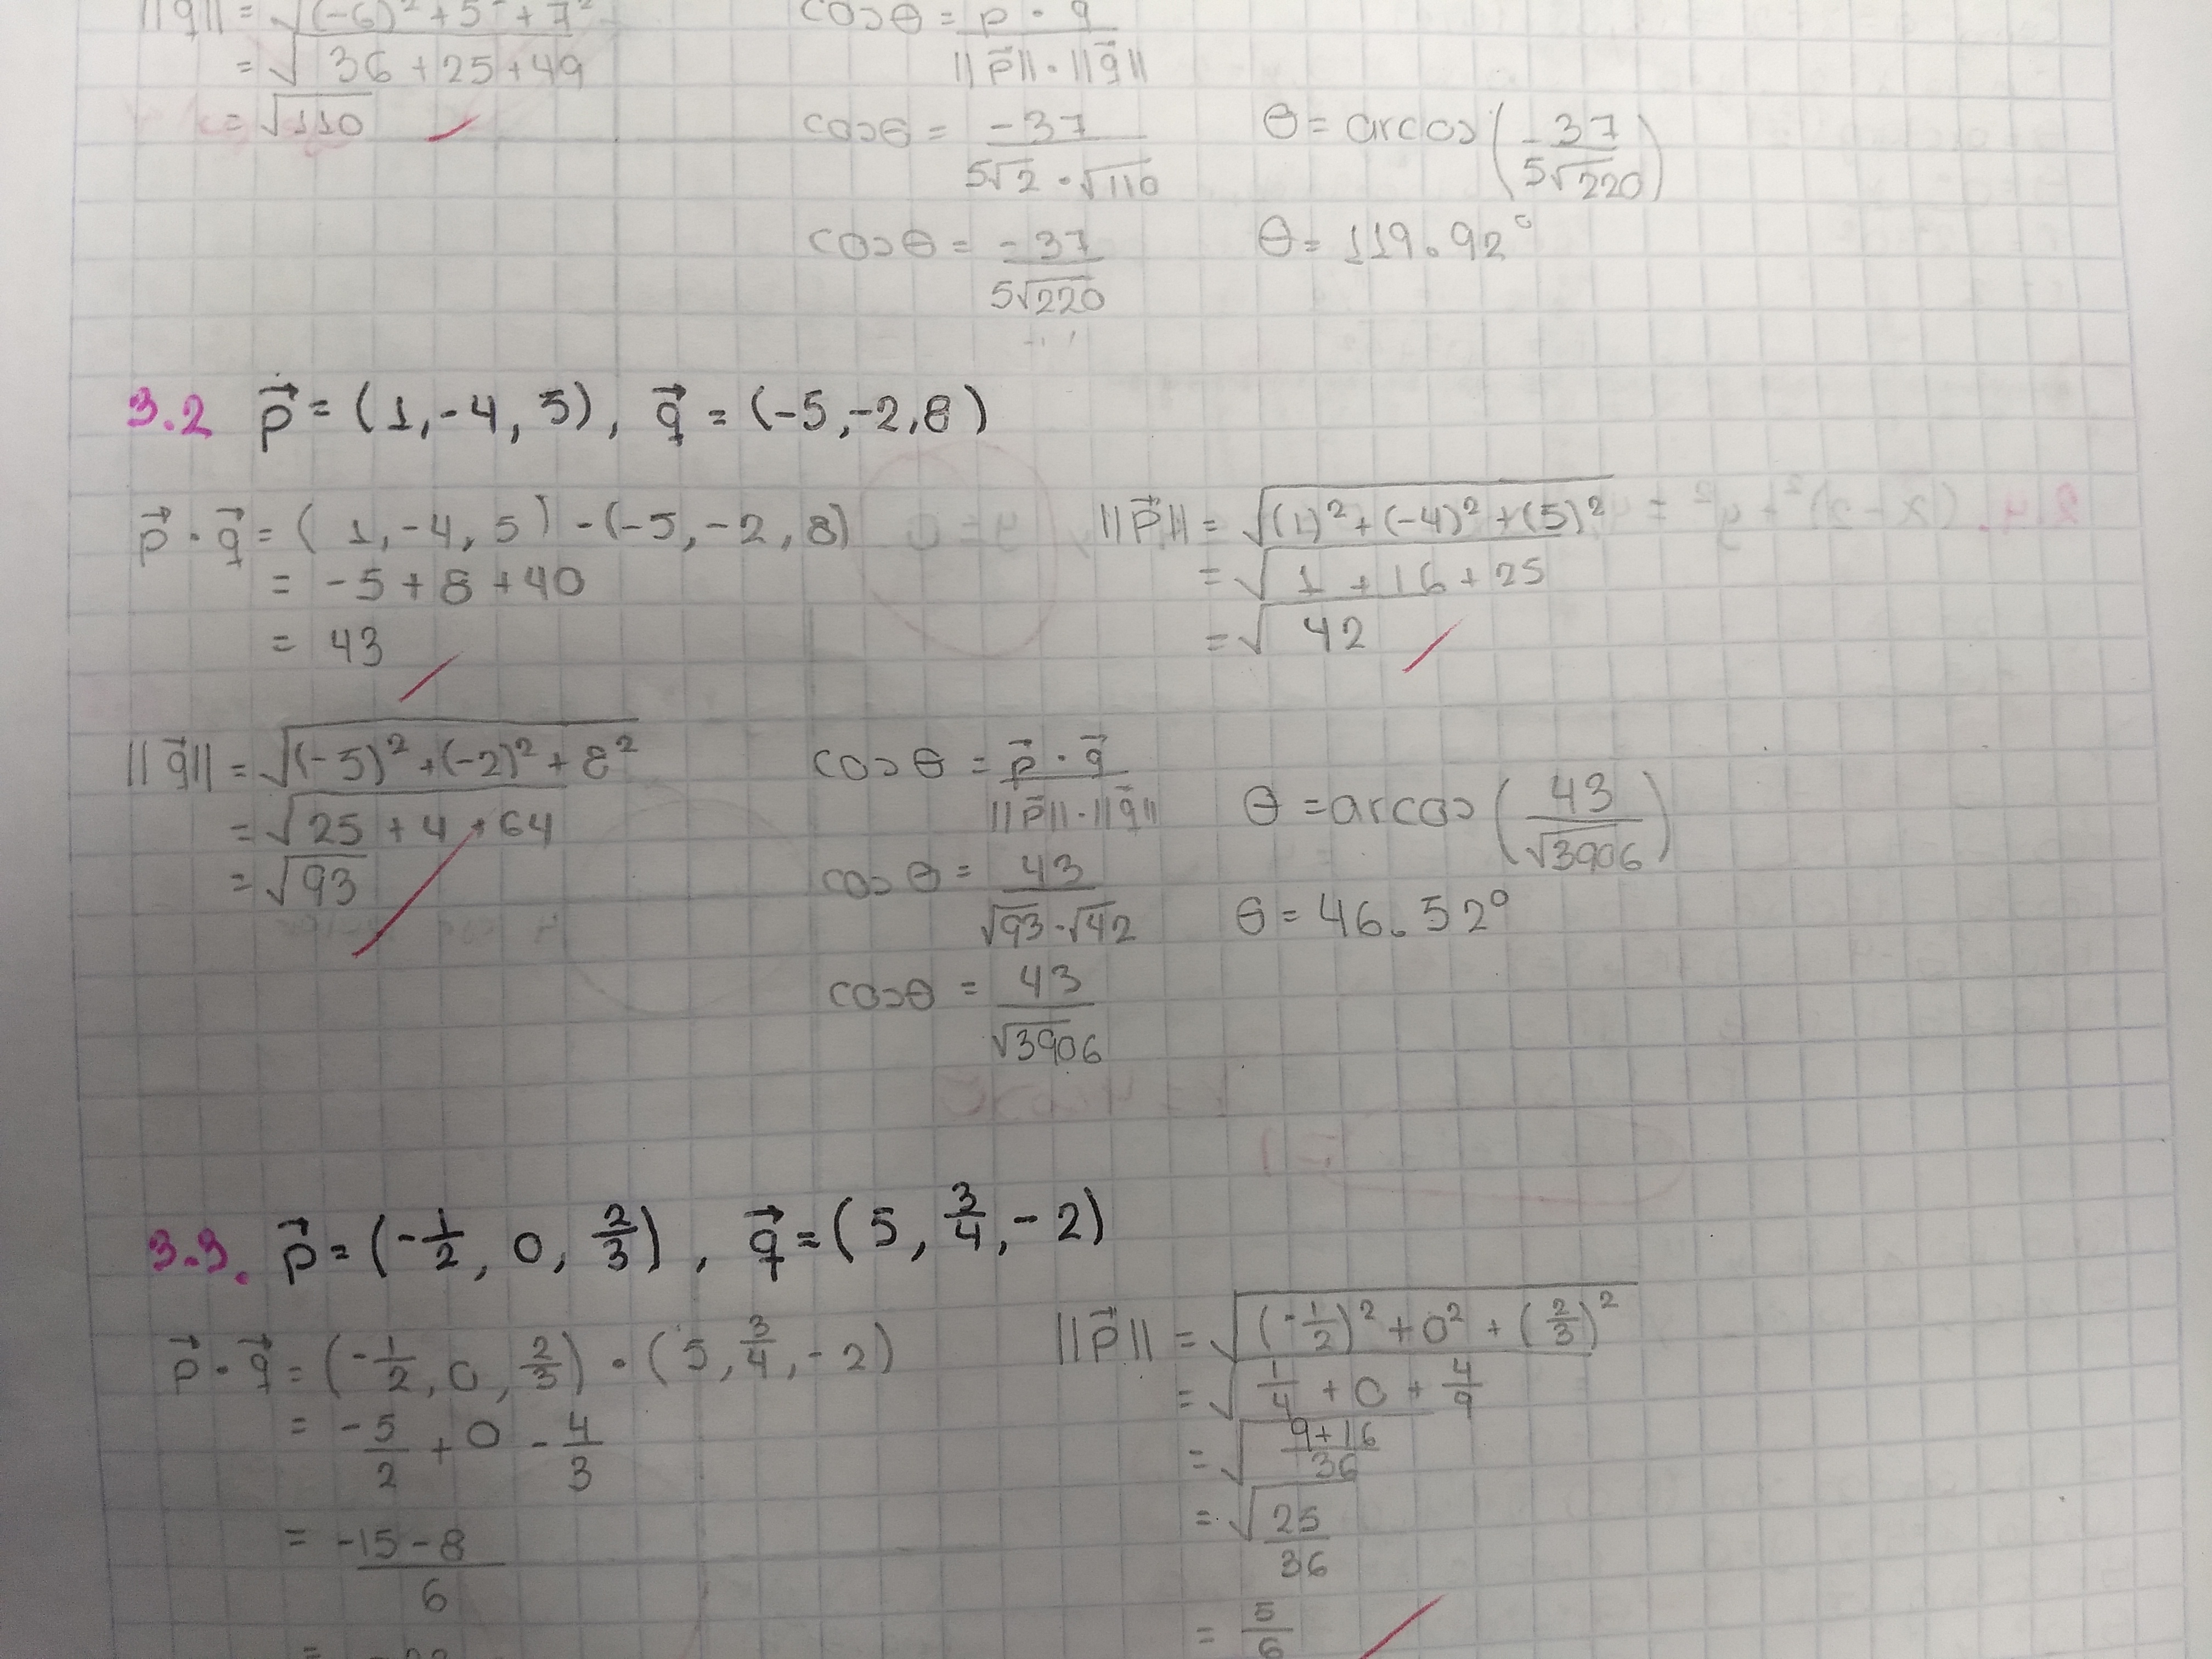 ||q⃗|| = √(-6)² + 5² + 7²
= √36 + 25 + 49
= √110
cosθ = p · q / ||p⃗|| · ||q⃗||
cosθ = -37 / 5√2 · √110
cosθ = -37 / 5√220
θ = arcos(-37 / 5√220)
θ = 119.92°
3.2 p⃗ = (1, -4, 5), q⃗ = (-5, -2, 8)
p⃗ · q⃗ = (1, -4, 5) - (-5, -2, 8)
= -5 + 8 + 40
= 43
||p⃗|| = √(1)² + (-4)² + (5)²
= √1 + 16 + 25
= √42
||q⃗|| = √(-5)² + (-2)² + 8²
= √25 + 4 + 64
= √93
cosθ = p⃗ · q⃗ / ||p⃗|| · ||q⃗||
cosθ = 43 / √93 · √42
cosθ = 43 / √3906
θ = arcos(43 / √3906)
θ = 46.52°
3.3. p⃗ = (-1/2, 0, 2/3), q⃗ = (5, 3/4, -2)
p⃗ · q⃗ = (-1/2, 0, 2/3) · (5, 3/4, -2)
= -5/2 + 0 - 4/3
= -15 - 8 / 6
||p⃗|| = √(-1/2)² + 0² + (2/3)²
= √1/4 + 0 + 4/9
= √9+16 / 36
= √25/36
= 5/6